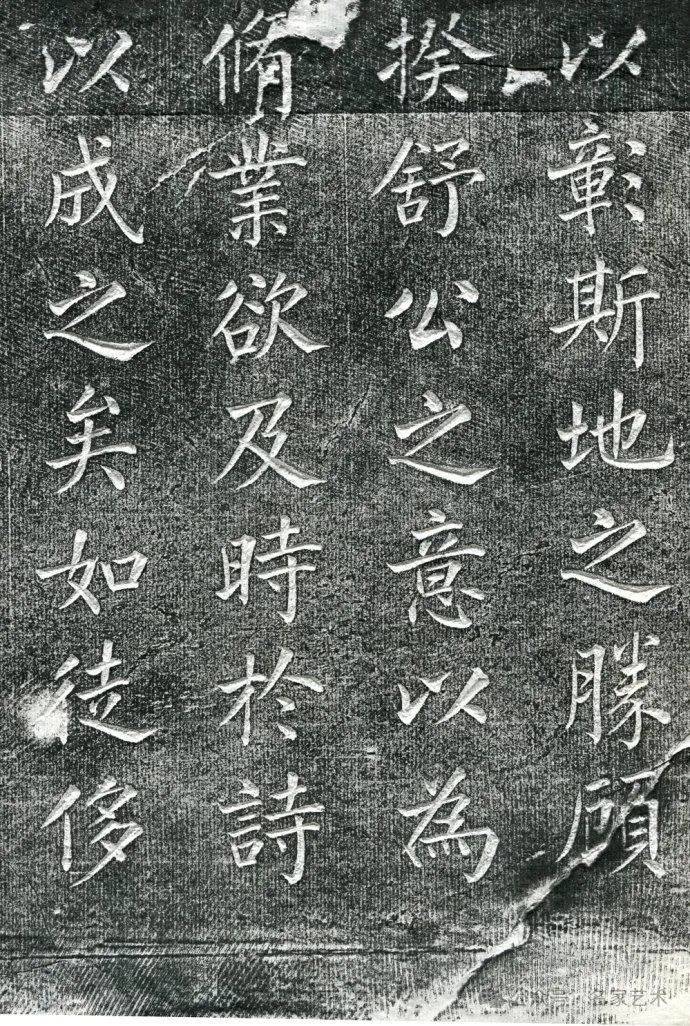 以彰斯地之勝顧
揆舒公之意以為
脩業欲及時於詩
以成之矣如徒侈
名家艺术